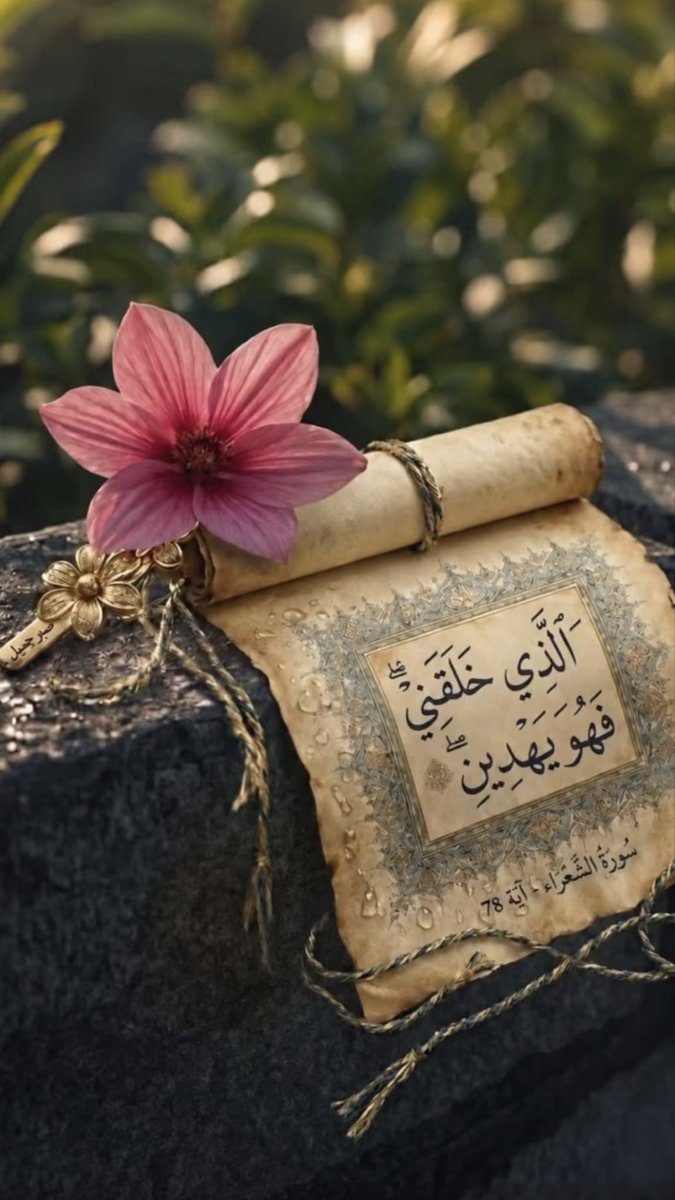 ٱلَّذِي خَلَقَنِي ۖ
فَهُوَ يَهْدِينِ ۖ
سُورَةُ الشُّعَرَاء - آيَة 78
صبر جميل